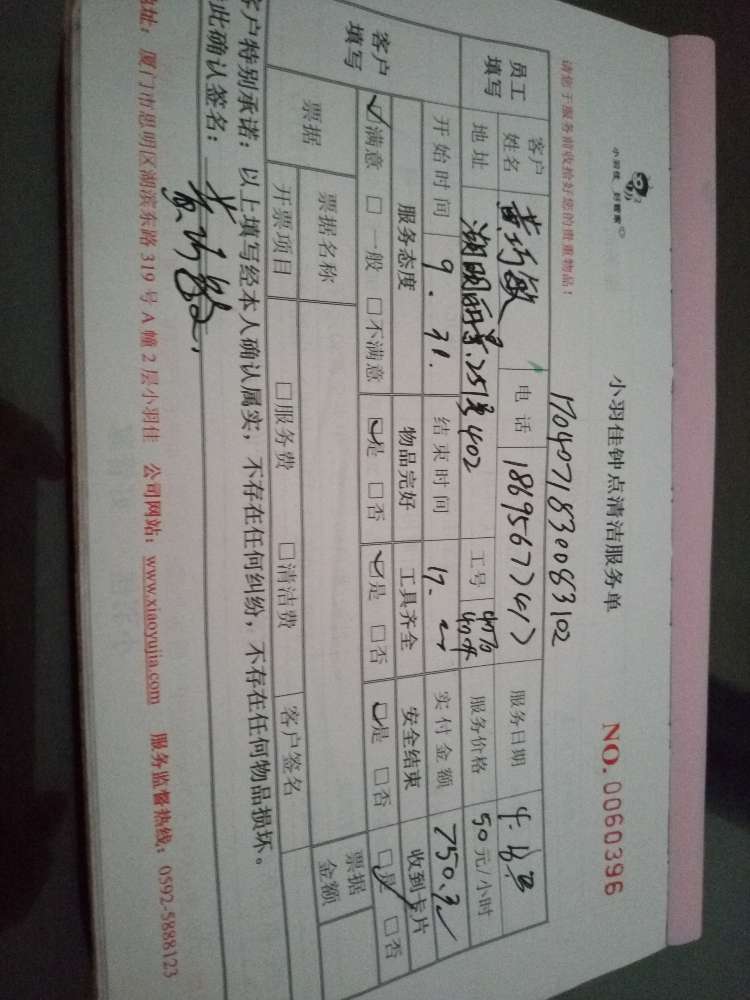 小羽佳 好管家
小羽佳钟点清洁服务单
NO.0060396
请您于服务前收拾好您的贵重物品!
1704071830083102
员工填写 客户姓名 黄巧敏 电话 服务日期
地址 251号402 工号 服务价格 50元/小时
开始时间 9. 31. 结束时间 17. 实付金额 750.元
客户填写 服务态度 物品完好 工具齐全 安全结束 收到卡片
☑满意 □一般 □不满意 ☑是 □否 ☑是 □否 ☑是 □否 ☑是 □否
票据 票据名称 票据金额
开票项目 □服务费 □清洁费 客户签名
客户特别承诺:以上填写经本人确认属实,不存在任何纠纷,不存在任何物品损坏。
此确认签名:黄巧敏
地址:厦门市思明区湖滨东路319号A幢2层小羽佳 公司网站:www.xiaoyujia.com 服务监督热线:0592-5888123